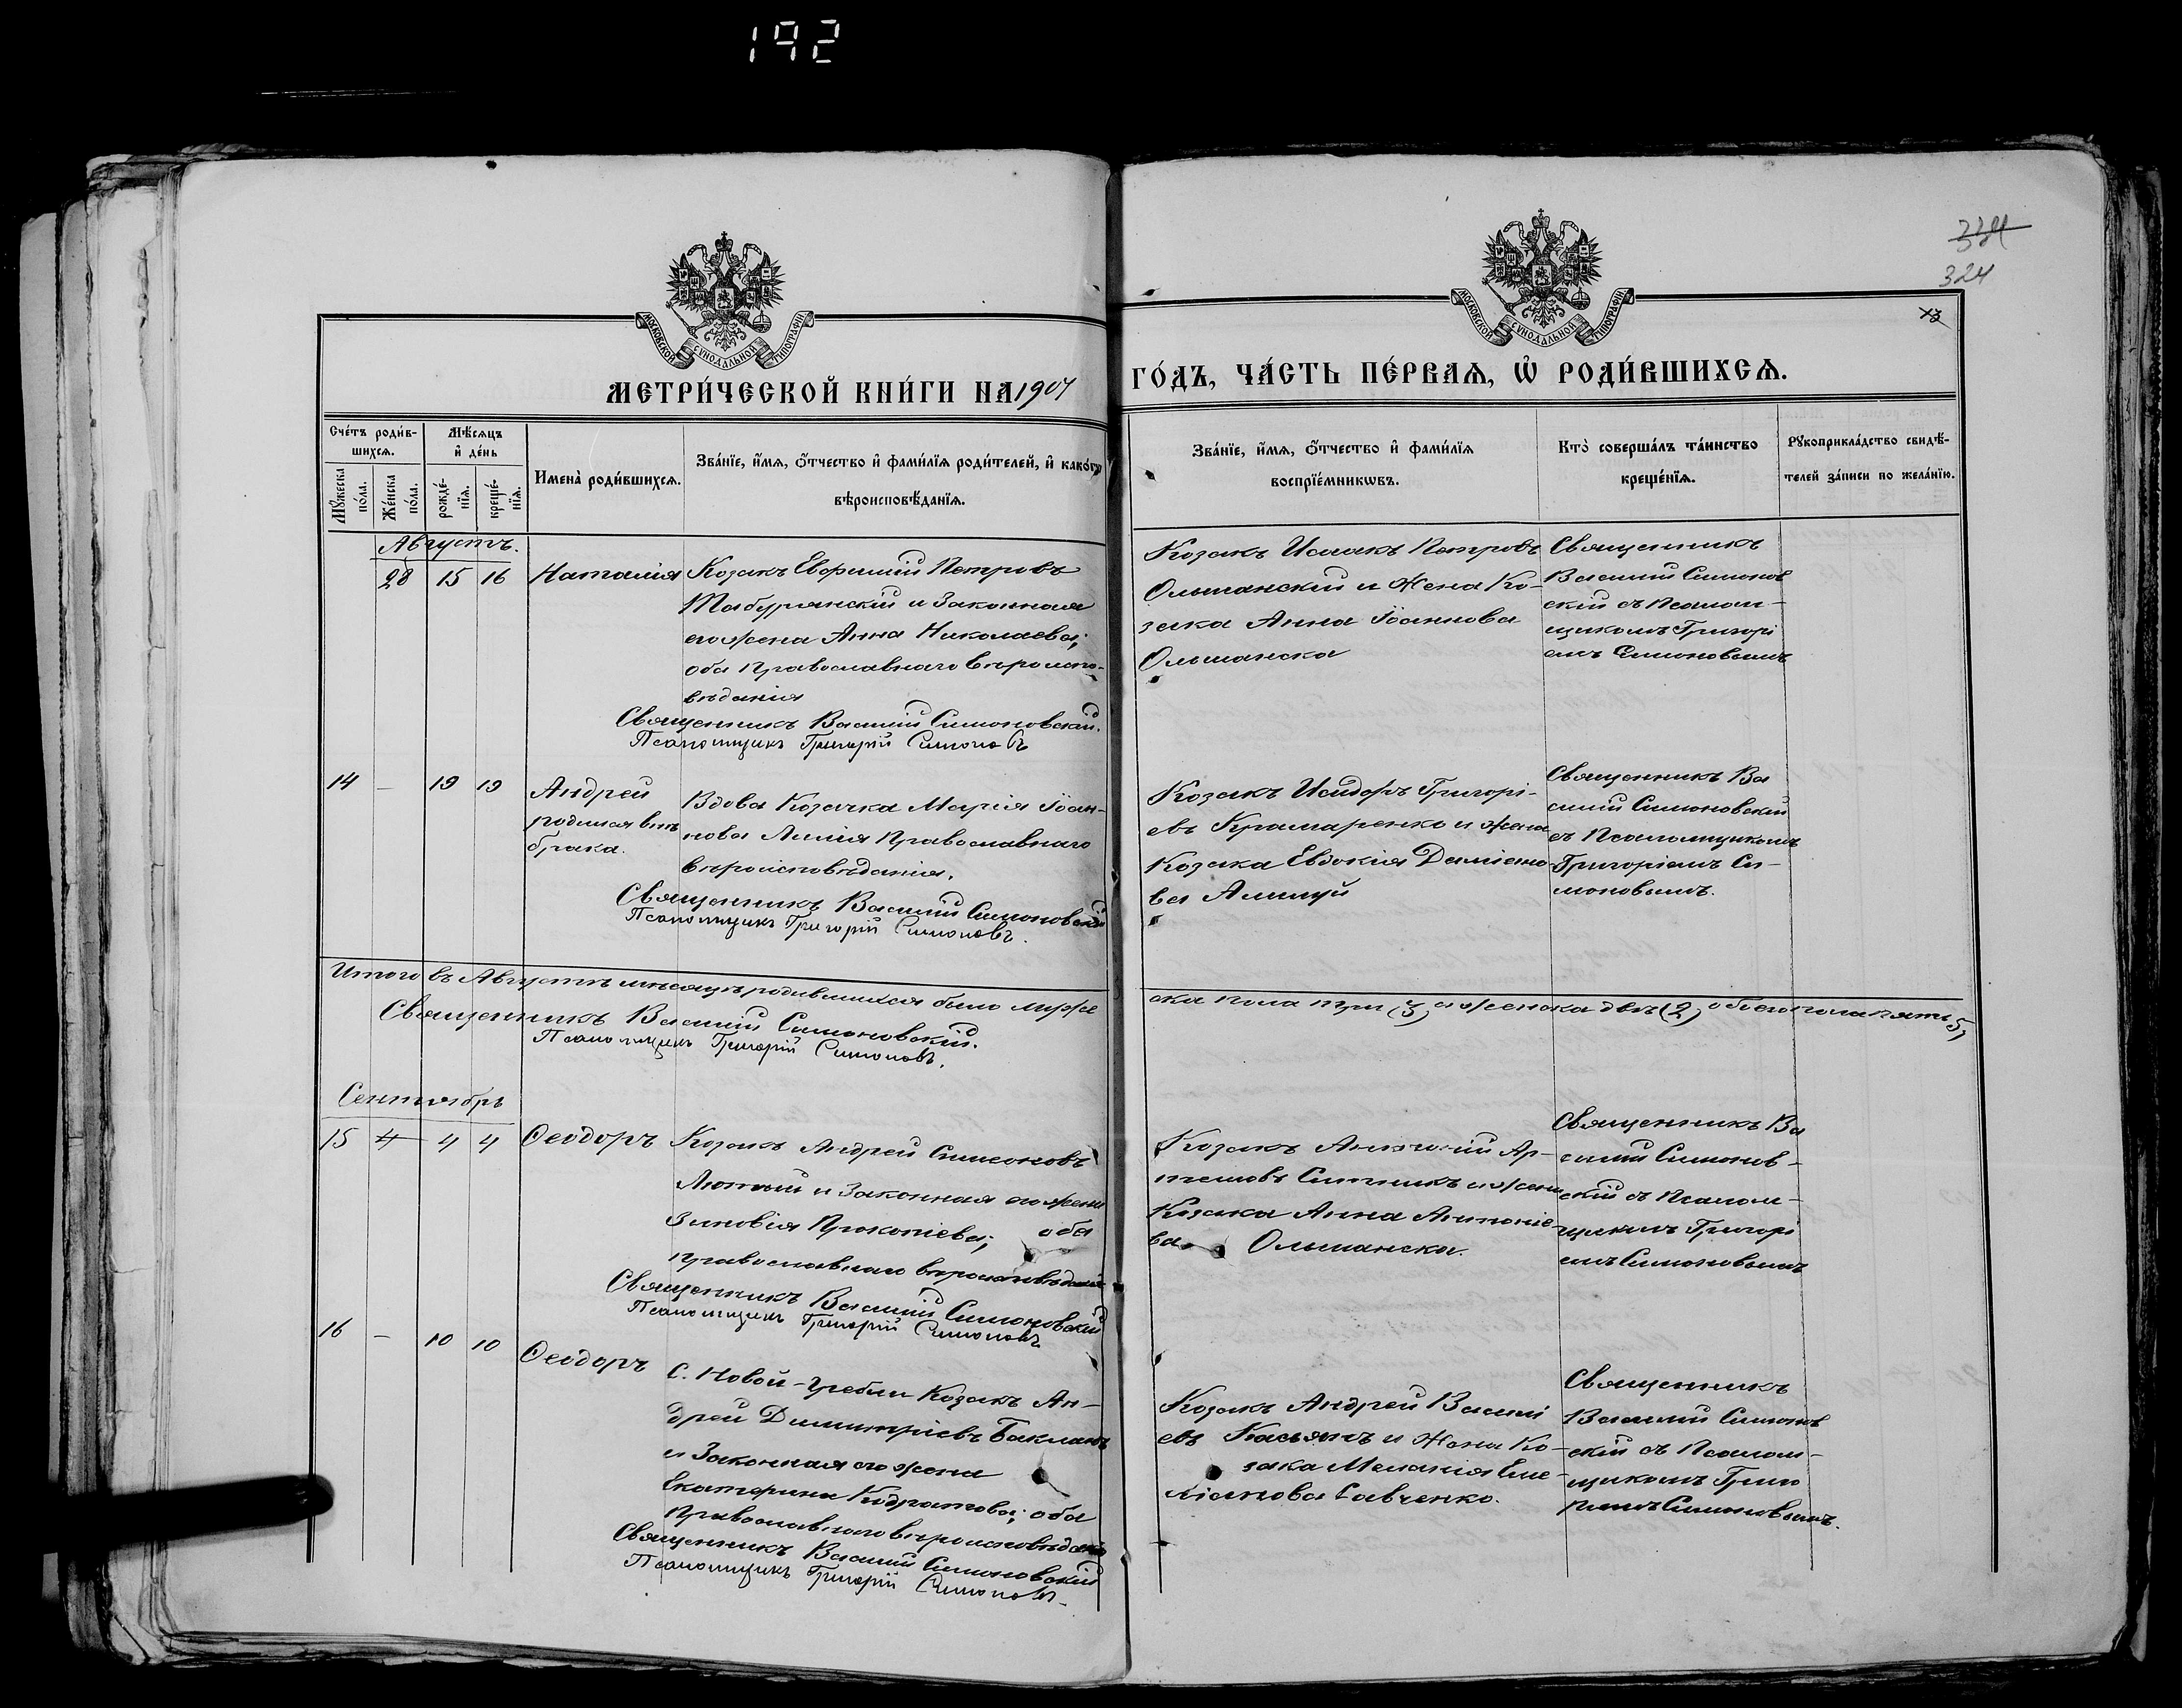 192
324
МОСКОВСКОЙ СѴНОДАЛЬНОЙ ТИПОГРАФІИ
МОСКОВСКОЙ СѴНОДАЛЬНОЙ ТИПОГРАФІИ
МЕТРИ́ЧЕСКОЙ КНИ́ГИ НА 1907 ГО́ДЪ, ЧА́СТЬ ПЕ́РВАѦ, Ѡ҆ РОДИ́ВШИХСѦ.
Сче́тъ роди́в-
шихсѧ.
Мꙋ́жеска по́ла.
Же́нска по́ла.
Мѣ́сѧцъ
и҆ де́нь
рожде́-
нїѧ.
креще́-
нїѧ.
Имена̀ роди́вшихсѧ.
Зва́нїе, и҆́мѧ, ѻ҆́тчество и҆ фами́лїѧ роди́телей, и҆ како́гѡ
вѣроисповѣ́данїѧ.
Зва́нїе, и҆́мѧ, ѻ҆́тчество и҆ фами́лїѧ
воспрїе́мникѡвъ.
Кто̀ соверша́лъ та́инство
креще́нїѧ.
Рꙋкоприкла́дство свидѣ́-
телей за́писи по жела́нїю.
Августъ.
28 15 16 Наталія
Козакъ Евфимій Петровъ
Табурянскій и Законная
его жена Анна Николаева;
оба Православнаго вѣроиспо-
вѣданія
Священникъ Василій Симоновскій.
Псаломщикъ Григорій Симоновъ
Козакъ Исаакъ Петровъ
Ольшанскій и Жена Ко-
зака Анна Іоаннова
Ольшанска
Священникъ
Василій Симонов
скій съ Псалом-
щикомъ Григорі
емъ Симоновымъ
14 — 19 19 Андрей
родился внѣ
брака.
Вдова Козачка Марія Іоан-
нова Православнаго
вѣроисповѣданія.
Священникъ Василій Симоновскій
Псаломщикъ Григорій Симоновъ.
Козакъ Исидоръ Григорі-
евъ Крамаренко и жена
Козака Евдокія Даміано-
ва
Священникъ Ва
силій Симоновскій
съ Псаломщикомъ
Григоріемъ Си-
моновымъ.
Итого въ Августѣ мѣсяцѣ родившихся было муже
ска пола три (3) а женска двѣ (2) обоего пола пять 5,
Священникъ Василій Симоновскій.
Псаломщикъ Григорій Симоновъ.
Сентябрь
15 4 4 Ѳеодоръ
Козакъ Андрей Симеоновъ
Лютый и Законная его жена
Зиновія Прокопіева; оба
православнаго вѣроисповѣданія
Священникъ Василій Симоновскій
Псаломщикъ Григорій Симоновъ
Козакъ Антоній Ар-
темовъ Ситникъ и жена
Козака Анна Антоніе-
ва Ольшанска.
Священникъ Ва
силій Симонов-
скій съ Псалом-
щикомъ Григорі
емъ Симоновымъ
16 — 10 10 Ѳеодоръ
С. Новой-Гребли Козакъ Ан-
дрей Димитріевъ Бакланъ
и Законная его жена
Екатерина Кодратова; оба
Православнаго вѣроисповѣданія
Священникъ Василій Симоновскій
Псаломщикъ Григорій Симоновъ.
Козакъ Андрей Василі
евъ Касьянъ и Жена Ко-
зака Меланія Еме-
ліанова Савченко.
Священникъ
Василій Симонов
скій съ Псалом-
щикомъ Григо
ріемъ Симоновымъ.